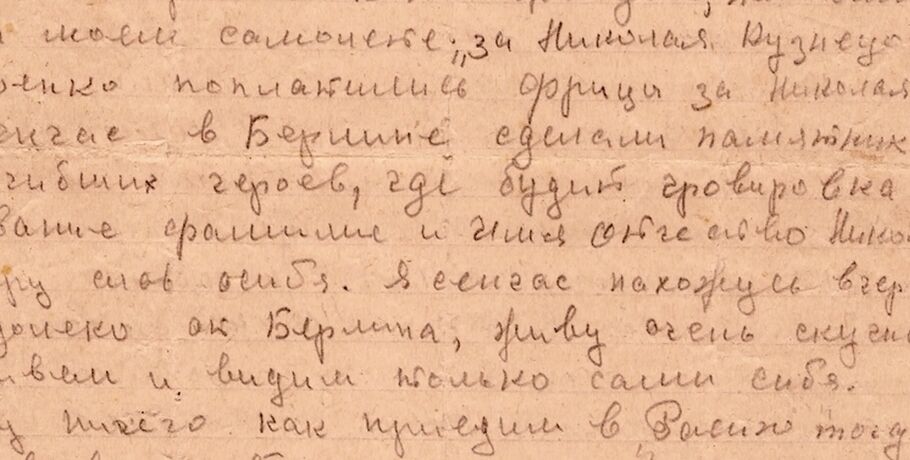 моем самолете: „за Николая Кузнецо
поплатились фрицы за Николая
ейчас в Берлине сделали памятник
гибших героев, где будит гровировка
вание фамилие и имя отчество Нико
слов осибя. Я сейчас нахожусь вгер
далеко от Берлина, живу очень скучно
ивем и видим только сами сибя.
ничего как приедим в Расию тогд